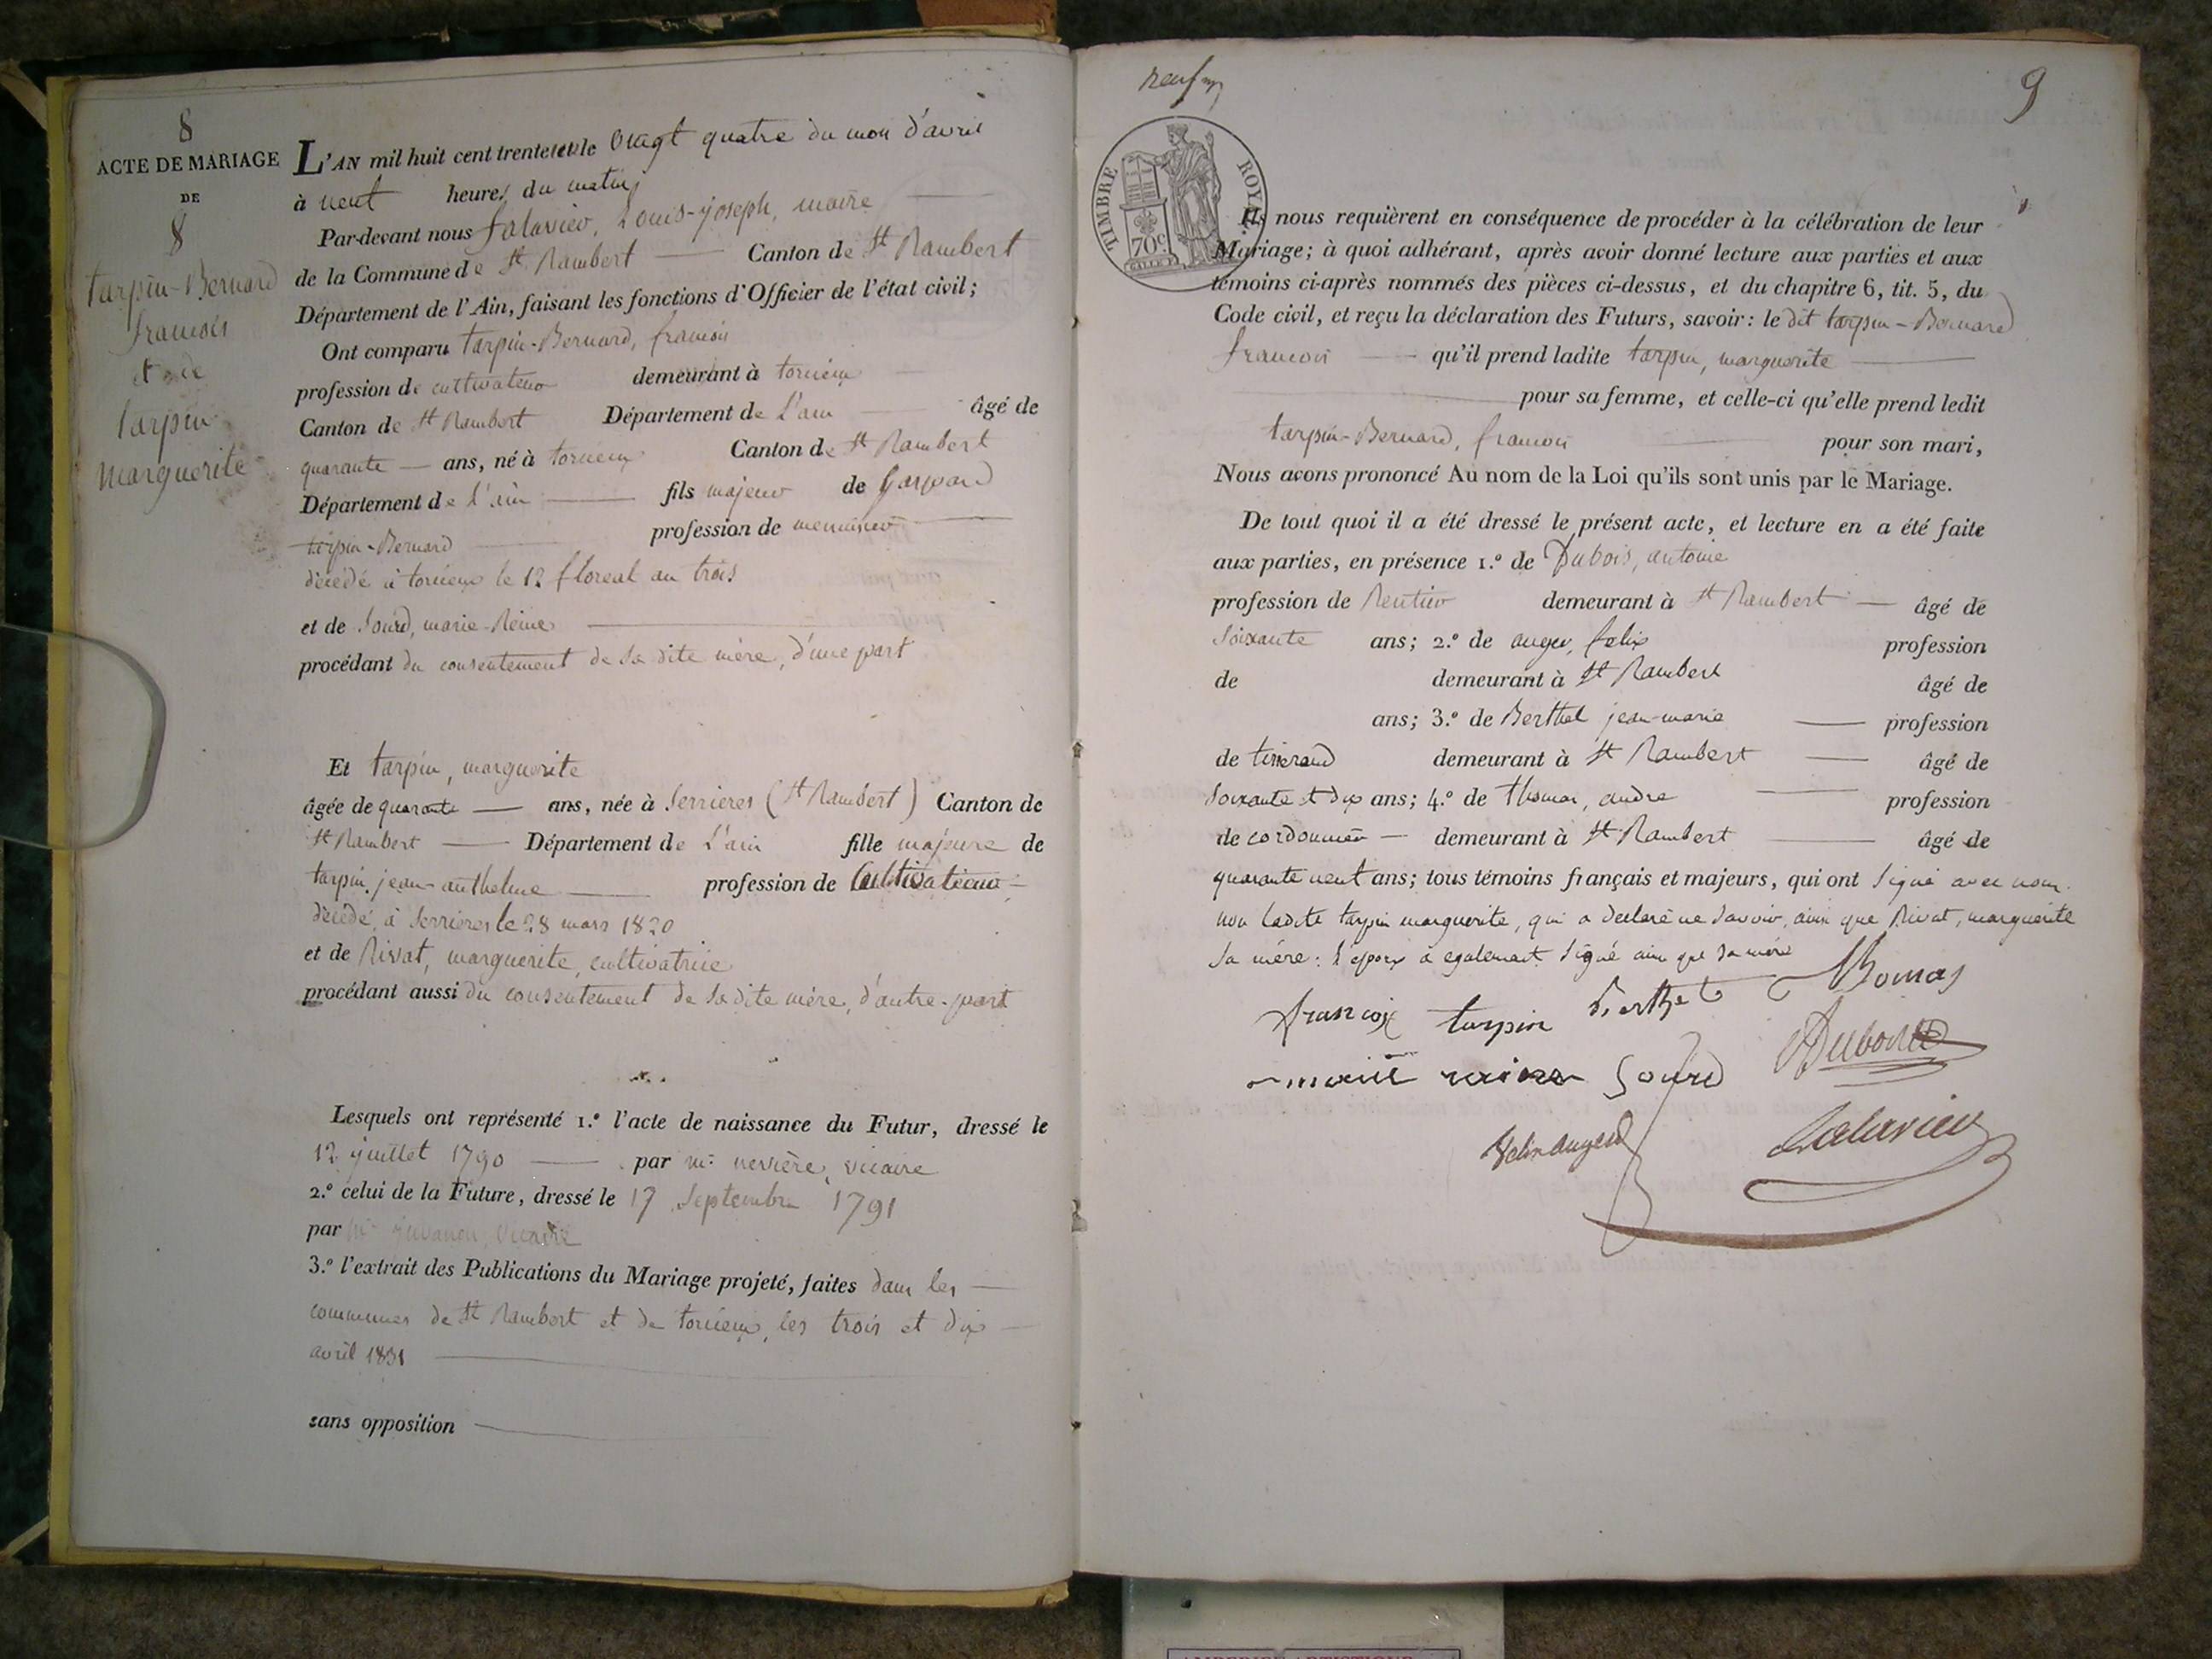 8
ACTE DE MARIAGE
DE
8
tarpin-Bernard
francois
et de
tarpin
marguerite
L'AN mil huit cent trente et un le vingt quatre du moi d'avril
à neuf heures du matin
Par-devant nous falavier, Louis-joseph, maire
de la Commune de St Rambert Canton de St Rambert
Département de l'Ain, faisant les fonctions d'Officier de l'état civil;
Ont comparu tarpin-Bernard, francois
profession de cultivateur demeurant à torcieux
Canton de St Rambert Département de L'ain âgé de
quarante ans, né à torcieux Canton de St Rambert
Département de L'ain fils majeur de Gaspard
tarpin-Bernard profession de menuisier
décédé à torcieux le 12 floreal an trois
et de Sourd, marie-Reine
procédant du consentement de sa dite mère, d'une part
Et tarpin, marguerite
âgée de quarante ans, née à Serrieres (St Rambert) Canton de
St Rambert Département de L'ain fille majeure de
tarpin, jean-anthelme profession de Cultivateur
décédé à Serrieres le 28 mars 1820
et de Rivat, marguerite, cultivatrice
procédant aussi du consentement de sadite mère, d'autre-part
Lesquels ont représenté 1.º l'acte de naissance du Futur, dressé le
12 juillet 1790 par mr vicaire
2.º celui de la Future, dressé le 17 Septembre 1791
par mr juvanon, vicaire
3.º l'extrait des Publications du Mariage projeté, faites dans les
communes de St Rambert et de torcieux, les trois et dix
avril 1831
sans opposition
neuf
9
TIMBRE ROYAL
70c
Ils nous requièrent en conséquence de procéder à la célébration de leur
Mariage; à quoi adhérant, après avoir donné lecture aux parties et aux
témoins ci-après nommés des pièces ci-dessus, et du chapitre 6, tit. 5, du
Code civil, et reçu la déclaration des Futurs, savoir: le dit tarpin-Bernard
francois qu'il prend ladite tarpin, marguerite
pour sa femme, et celle-ci qu'elle prend ledit
tarpin-Bernard, francois pour son mari,
Nous avons prononcé Au nom de la Loi qu'ils sont unis par le Mariage.
De tout quoi il a été dressé le présent acte, et lecture en a été faite
aux parties, en présence 1.º de Dubois, antoine
profession de Rentier demeurant à St Rambert âgé de
soixante ans; 2.º de auger, felix profession
de demeurant à St Rambert âgé de
ans; 3.º de Berthet jean-marie profession
de tisserand demeurant à St Rambert âgé de
soixante et dix ans; 4.º de thomas, andre profession
de cordonnier demeurant à St Rambert âgé de
quarante neuf ans; tous témoins français et majeurs, qui ont signé avec nous
non ladite tarpin marguerite, qui a declaré ne savoir, ainsi que Rivat, marguerite
sa mère: l'epoux a egalement signé ainsi que sa mère
francois tarpin Berthet Thomas
marie raine Sourd Dubois
felix auger falavier